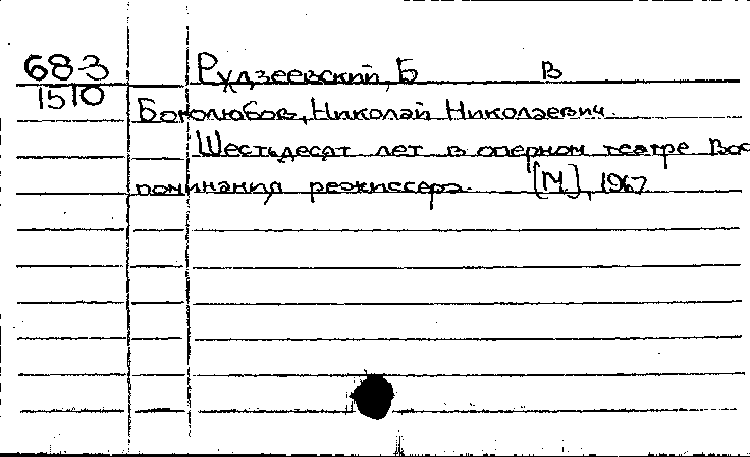 68-3 Рудзеевский, Б В
1510 Боголюбов, Николай Николаевич.
Шестьдесят лет в оперном театре Вос
поминания режиссера. [М.], 1967